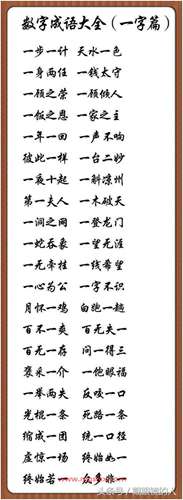 数字成语大全（一字篇）
一步一计 天水一色
一身两任 一钱太守
一顾之荣 一顾倾人
一饭之恩 一家之主
一年一回 一声不响
彼此一样 一台二妙
一夜十起 一斛凉州
第一夫人 一木破天
一涧之网 一登龙门
一蛇吞象 一望无涯
一无牵挂 一线希望
一心为公 一字不识
月怀一鸡 白驼一越
百不一爽 百无失一
百无一存 问一得三
褒采一介 一饱眼福
一举两失 反咬一口
光棍一条 死路一条
缩成一团 统一口径
虚惊一场 终始如一
终始若 众多非一
头条号